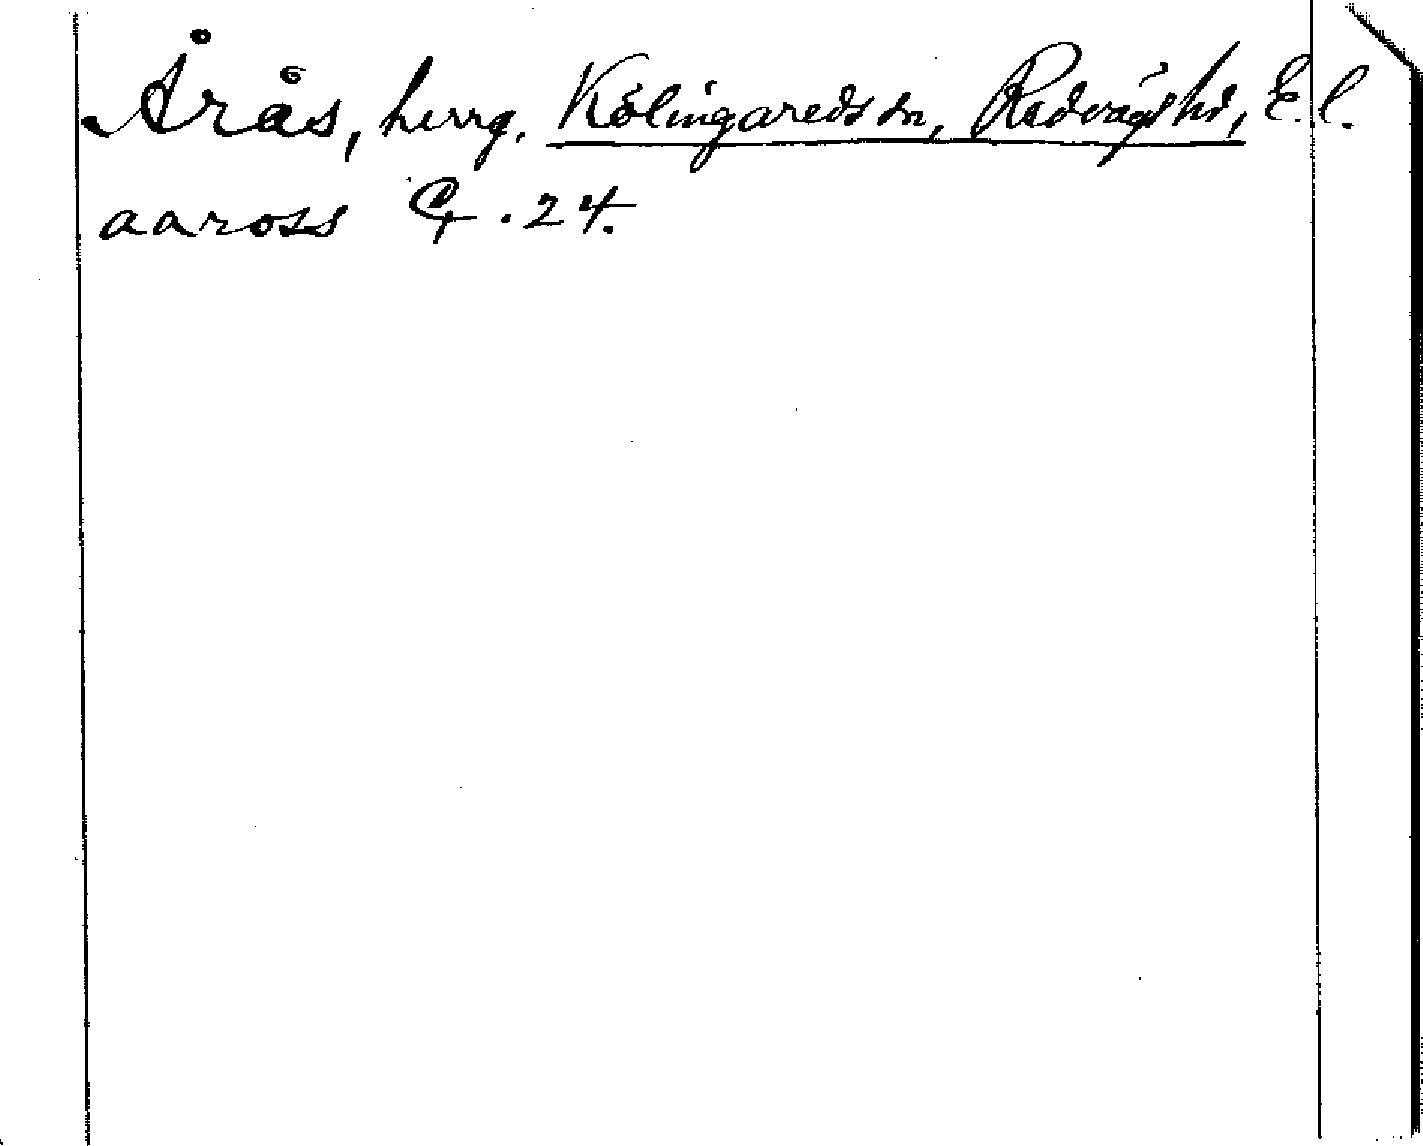 Årås, herrg. Kölingareds sn, Redvägs hd, E.l.
aaross G .24.